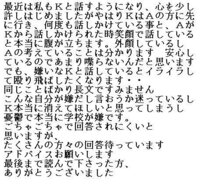 最近は私もKと話すようになり、心を少し
許しはじめましたがやはりKはAの方に先
に行き、何度も話しかけている事と、Aが
Kから話しかけられた時笑顔で話している
と本当に腹が立ちます。外顔しているし
Aの考えていることは分かります 苦心し
ているのであまり喋らないんだと思います
でも、嫌いなKと話しているとイライラし
て殴り飛ばしたくなります・・
同じことばかり長文ですみません
こんな自分が嫌だし言おうか迷っているし
K本当に消えてほしいと思ってしまうし
憂鬱で本当に学校が嫌です。
ごちゃごちゃで回答されにくいと
思いますが、
たくさんの方々の回答待っています
アドバイスお願いします
最後まで読んで下さった方、
ありがとうございました